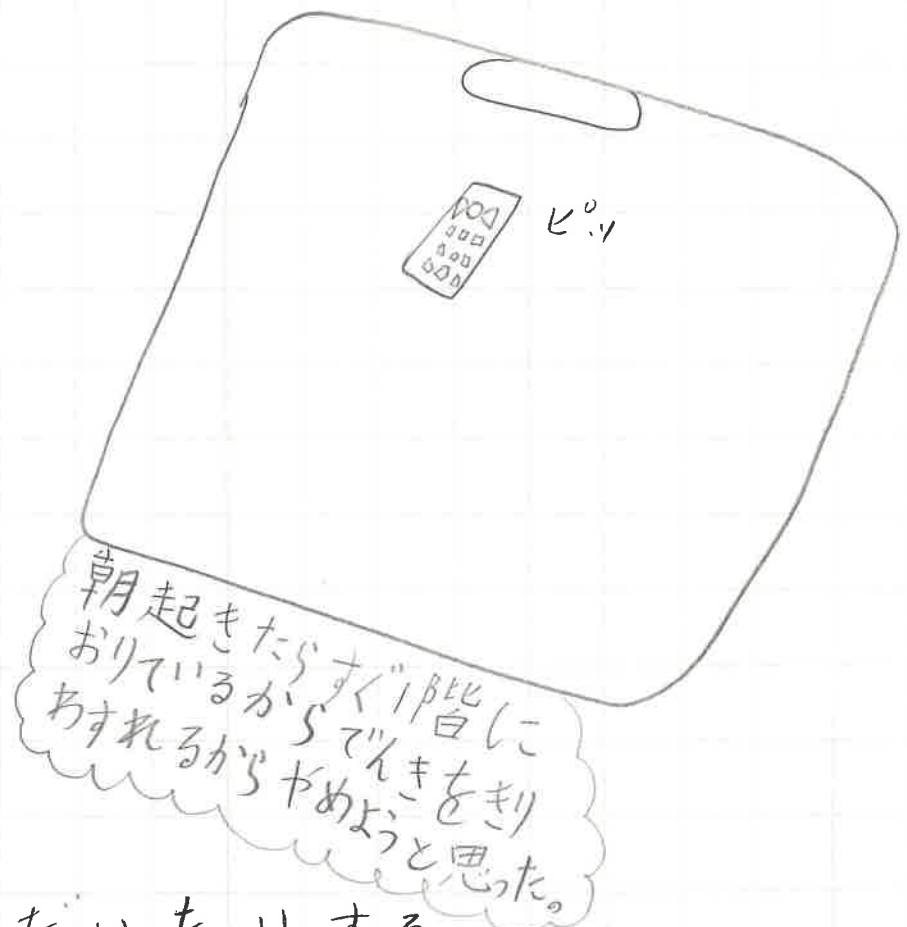 ピッ
朝起きたらすぐ1階に
おりているからでんきをきり
わすれるからやめようと思った。
だいたりする